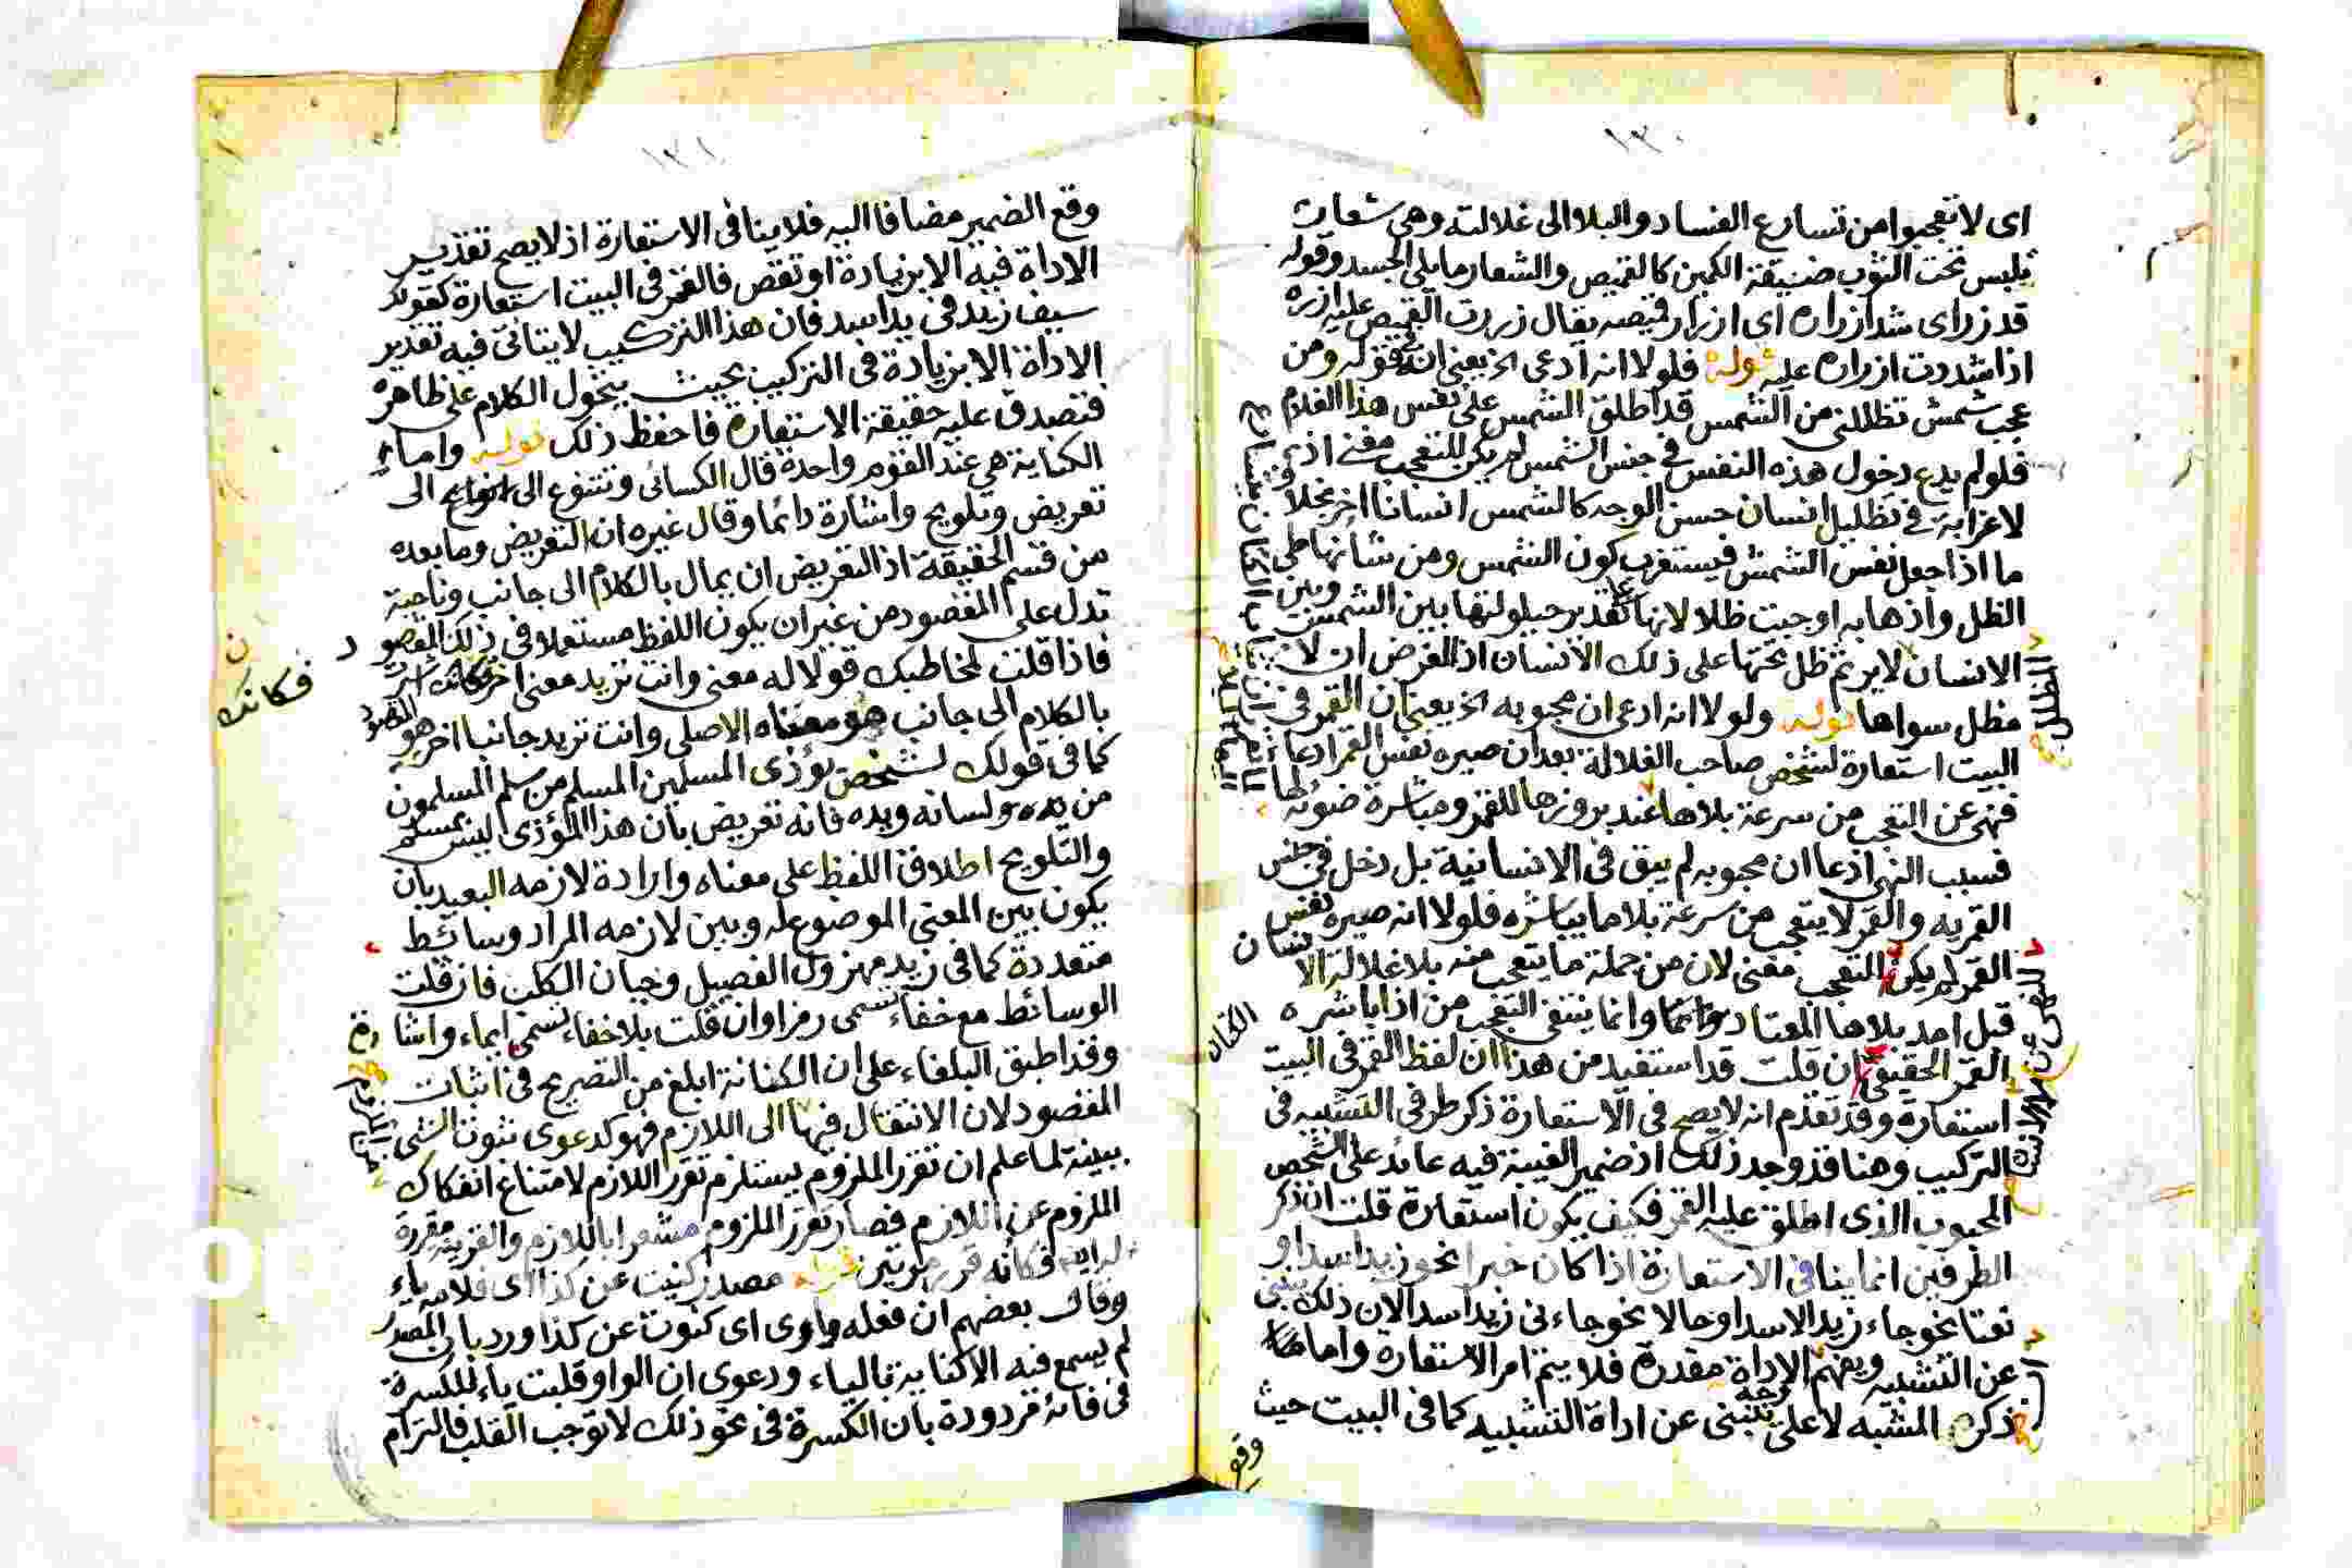 ١٣٠
اى لا تعجبوا من تسارع الفساد والبلا الى غلالته وهي شعار
يلبس تحت الثوب ضيقة الكمين كالقميص والشعار ما يلى الجسد وقوله
قد زر اى شد ازراره اى ازرار قميصه يقال زررت القميص عليه ازره
اذا شددت ازراره عليه قوله فلولا انه ادعى الخ يعنى ان في قوله ومن
عجب شمس تظللنى من الشمس قد اطلق الشمس على نفس هذا الغلام
فلو لم يدع دخول هذه النفس في جنس الشمس لم يكن للتعجب معنى اذ
لا غرابة في تظليل انسان حسن الوجه كالشمس انسانا اخر بخلاف
ما اذا جعل نفس الشمس فيستغرب كون الشمس ومن شأنها طي
الظل واذهابه اوجبت ظلا لانها تقدير حيلولتها بين الشمس وبين
الانسان لا يرتم ظل تحتها على ذلك الانسان اذ الغرض ان لا
مظل سواها قوله ولولا انه ادعى ان محبوبه الخ يعنى ان القمر في
البيت استعارة لشخص صاحب الغلالة بعد ان صيره نفس القمر ادعا
فنهى عن التعجب من سرعة بلاها عند بروزها للقمر ومباشرة ضوئه لها
فسبب النهى اذعا ان محبوبه لم يبق فى الانسانية بل دخل في جنس
القمريه والقمر لا يتعجب من سرعة بلا ما يباشره فلولا انه صيره نفس
القمر لم يكن للتعجب معنى لان من جملة ما يتعجب منه بلا غلالة الا نسان
قبل امد بلاها المعتاد وانما ينتفى التعجب من اذا باشره
القمر الحقيقي ان قلت قد استفيد من هذا ان لفظ القمر فى البيت
استعارة وقد تقدم انه لا يصح فى الاستعارة ذكر طرفى التشبيه فى
التركيب وهنا قد وجد ذلك اذ ضمير الغيبة فيه عائد على الشخص
المحبوب الذى اطلق عليه القمر فكيف يكون استعارة قلت ان ذكر
الطرفين انما ينافى الاستعارة اذا كان خبرا نحو زيد اسد او
نعتا نحو جاء زيد الاسد او حالا نحو جاءنى زيد اسدا لان ذلك ينبى
عن التشبيه ويفهم الاداة مقدرة فلا يتم امر الاستعارة واما
ذكر المشبه لا على وجه ينبى عن اداة التشبيه كما فى البيت حيث
وقع
الكتان
١٣١
وقع الضمير مضافا اليه فلا ينافى الاستعارة اذ لا يصح تقدير
الاداة فيه الا بزيادة او نقص فالقمر فى البيت استعارة كقولك
سيف زيد فى يد اسد فان هذا التركيب لا يتاتى فيه تقدير
الاداة الا بزيادة فى التركيب بحيث يتحول الكلام على ظاهره
فتصدق عليه حقيقة الاستعارة فاحفظ ذلك قوله واما
الكناية هي عند القوم واحدة قال الكسائى وتتنوع الى انواع الى
تعريض وتلويح واشارة دائما وقال غيره ان التعريض وما بعده
من قسم الحقيقة اذ التعريض ان يمال بالكلام الى جانب وناحية
تدل على المقصود من غير ان يكون اللفظ مستعملا فى ذلك المقصود
فاذا قلت لمخاطبك قولا له معنى وانت تريد معنى اخر فكانك اشرت
بالكلام الى جانب هو معناه الاصلى وانت تريد جانبا اخر هو المقصود
كما فى قولك لشخص يؤذى المسلمين المسلم من سلم المسلمون
من يده ولسانه ويده فانه تعريض بان هذا المؤذى ليس بمسلم
والتلويح اطلاق اللفظ على معناه وارادة لازمه البعيد بان
يكون بين المعنى الموضوع له وبين لازمه المراد وسائط
متعددة كما فى زيد مهزول الفصيل وجبان الكلب فان قلت
الوسائط مع خفاء تسمى رمزا وان قلت بلا خفاء تسمى ايماء واشارة
وقد اطبق البلغاء على ان الكناية ابلغ من التصريح فى اثبات
المقصود لان الانتقال فيها الى اللازم فهو كدعوى ثبوت الشئ
ببينة لما علم ان تقرر الملزوم يستلزم تقرر اللازم لامتناع انفكاك
الملزوم عن اللازم فصار تقرر الملزوم مشعرا باللازم والقرينة مقررة
فكانه قرر مرتين قوله مصدر كنيت عن كذا اى فلامه ياء
وقال بعضهم ان فعله واوى اى كنوت عن كذا ورد بان المصدر
لم يسمع فيه الا كناية بالياء ودعوى ان الواو قلبت ياء للكسرة
فى فائه مردودة بان الكسرة فى نحو ذلك لا توجب القلب فالتزام
فكانك